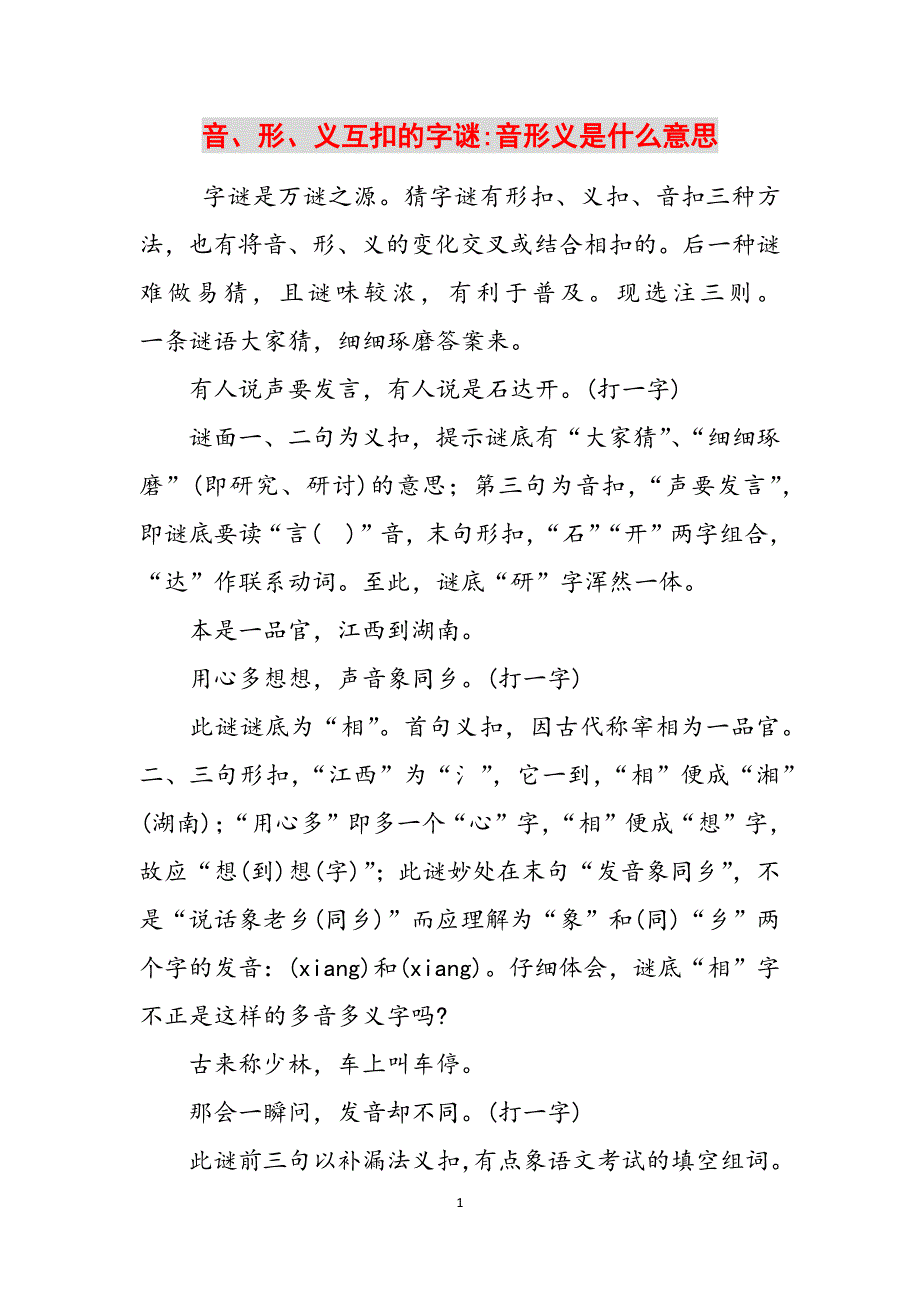 音、形、义互扣的字谜:音形义是什么意思
字谜是万谜之源。猜字谜有形扣、义扣、音扣三种方
法，也有将音、形、义的变化交叉或结合相扣的。后一种谜
难做易猜，且谜味较浓，有利于普及。现选注三则。
一条谜语大家猜，细细琢磨答案来。
有人说声要发言，有人说是石达开。(打一字)
谜面一、二句为义扣，提示谜底有“大家猜”、“细细琢
磨”(即研究、研讨)的意思；第三句为音扣，“声要发言”，
即谜底要读“言( )”音，末句形扣，“石”“开”两字组合，
“达”作联系动词。至此，谜底“研”字浑然一体。
本是一品官，江西到湖南。
用心多想想，声音象同乡。(打一字)
此谜谜底为“相”。首句义扣，因古代称宰相为一品官。
二、三句形扣，“江西”为“氵”，它一到，“相”便成“湘”
(湖南)；“用心多”即多一个“心”字，“相”便成“想”字，
故应“想(到)想(字)”；此谜妙处在末句“发音象同乡”，不
是“说话象老乡(同乡)”而应理解为“象”和(同)“乡”两
个字的发音：(xiang)和(xiang)。仔细体会，谜底“相”字
不正是这样的多音多义字吗?
古来称少林，车上叫车停。
那会一瞬问，发音却不同。(打一字)
此谜前三句以补漏法义扣，有点象语文考试的填空组词。
1